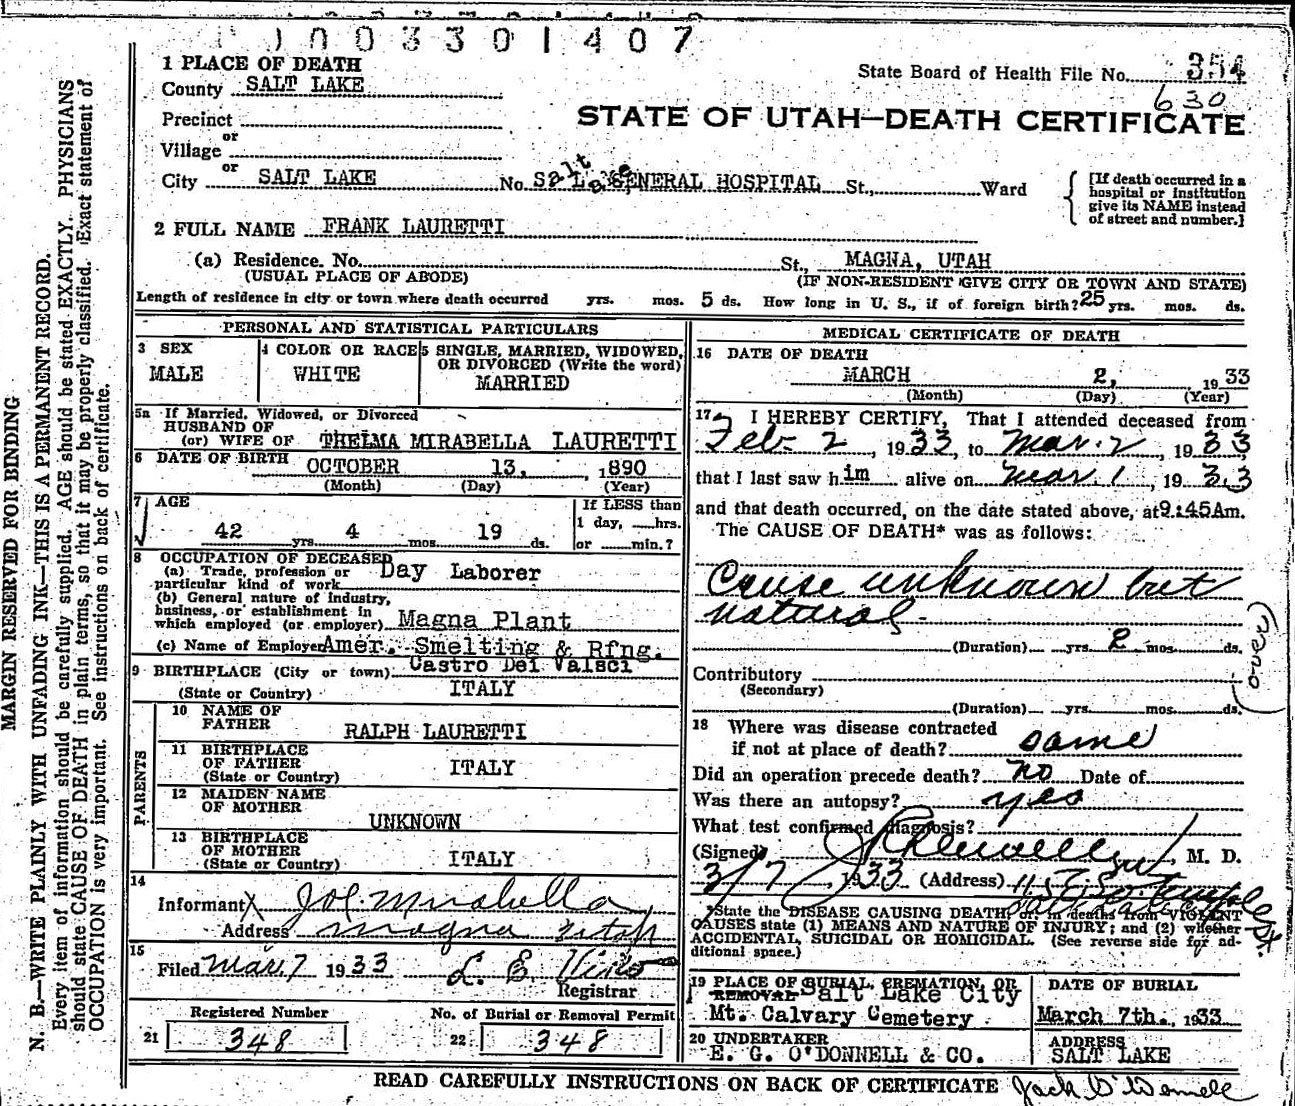 003301407
1 PLACE OF DEATH
State Board of Health File No. 354
County SALT LAKE
630
STATE OF UTAH—DEATH CERTIFICATE
Precinct
or
Village
or
City SALT LAKE No. Salt Lake GENERAL HOSPITAL St., Ward
[If death occurred in a hospital or institution give its NAME instead of street and number.]
2 FULL NAME FRANK LAURETTI
(a) Residence. No. St., MAGNA, UTAH
(USUAL PLACE OF ABODE) (IF NON-RESIDENT GIVE CITY OR TOWN AND STATE)
Length of residence in city or town where death occurred yrs. mos. 5 ds. How long in U. S., if of foreign birth? 25 yrs. mos. ds.
PERSONAL AND STATISTICAL PARTICULARS
3 SEX
MALE
4 COLOR OR RACE
WHITE
5 SINGLE, MARRIED, WIDOWED, OR DIVORCED (Write the word)
MARRIED
5a If Married, Widowed, or Divorced
HUSBAND OF
(or) WIFE OF THELMA MIRABELLA LAURETTI
6 DATE OF BIRTH OCTOBER 13, 1890
(Month) (Day) (Year)
7 AGE
42 yrs. 4 mos. 19 ds.
If LESS than
1 day, hrs.
or min.?
8 OCCUPATION OF DECEASED
(a) Trade, profession or particular kind of work Day Laborer
(b) General nature of industry, business, or establishment in which employed (or employer) Magna Plant
(c) Name of Employer Amer. Smelting & Rfng.
9 BIRTHPLACE (City or town) Castro Dei Valsci
(State or Country) ITALY
PARENTS
10 NAME OF FATHER
RALPH LAURETTI
11 BIRTHPLACE OF FATHER
(State or Country) ITALY
12 MAIDEN NAME OF MOTHER
UNKNOWN
13 BIRTHPLACE OF MOTHER
(State or Country) ITALY
14
Informant X Jos. Mirabella
Address Magna Utah
15
Filed Mar 7 1933 L. E.
Registrar
Registered Number
21 348
No. of Burial or Removal Permit
22 348
MEDICAL CERTIFICATE OF DEATH
16 DATE OF DEATH
MARCH 2, 1933
(Month) (Day) (Year)
17 I HEREBY CERTIFY, That I attended deceased from
Feb. 2, 1933, to Mar. 2, 1933,
that I last saw him alive on Mar. 1, 1933
and that death occurred, on the date stated above, at 9:45Am.
The CAUSE OF DEATH* was as follows:
Cause unknown but
natural.
(Duration) yrs. 2 mos. ds.
(over)
Contributory
(Secondary)
(Duration) yrs. mos. ds.
18 Where was disease contracted
if not at place of death? same
Did an operation precede death? no Date of
Was there an autopsy? yes
What test confirmed diagnosis?
(Signed) , M. D.
3/7, 1933 (Address) 115 So. Temple St
*State the DISEASE CAUSING DEATH, or, in deaths from VIOLENT
CAUSES state (1) MEANS AND NATURE OF INJURY; and (2) whether
ACCIDENTAL, SUICIDAL OR HOMICIDAL. (See reverse side for ad-
ditional space.)
19 PLACE OF BURIAL, CREMATION, OR
REMOVAL Salt Lake City
Mt. Calvary Cemetery
DATE OF BURIAL
March 7th., 1933
20 UNDERTAKER
E. G. O'DONNELL & CO.
ADDRESS
SALT LAKE
READ CAREFULLY INSTRUCTIONS ON BACK OF CERTIFICATE Jack O'Donnell
MARGIN RESERVED FOR BINDING
N. B.—WRITE PLAINLY WITH UNFADING INK—THIS IS A PERMANENT RECORD.
Every item of information should be carefully supplied. AGE should be stated EXACTLY. PHYSICIANS
should state CAUSE OF DEATH in plain terms, so that it may be properly classified. Exact statement of
OCCUPATION is very important. See instructions on back of certificate.